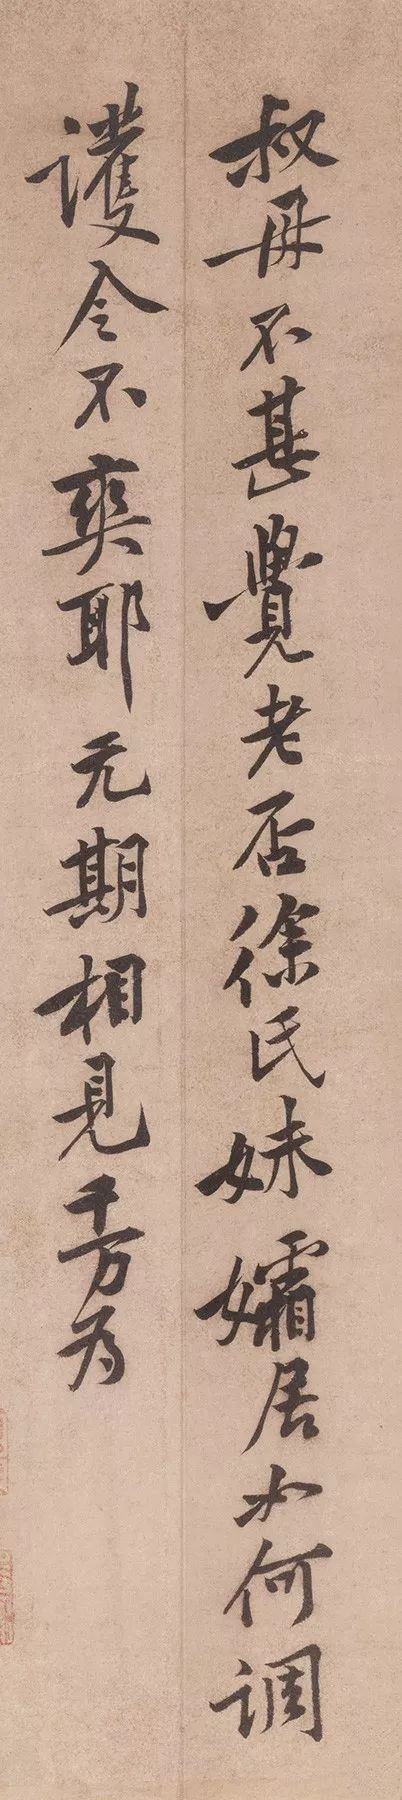 叔母不甚覺老否徐氏妹孀居如何調
護令不爽耶元期相見千万為